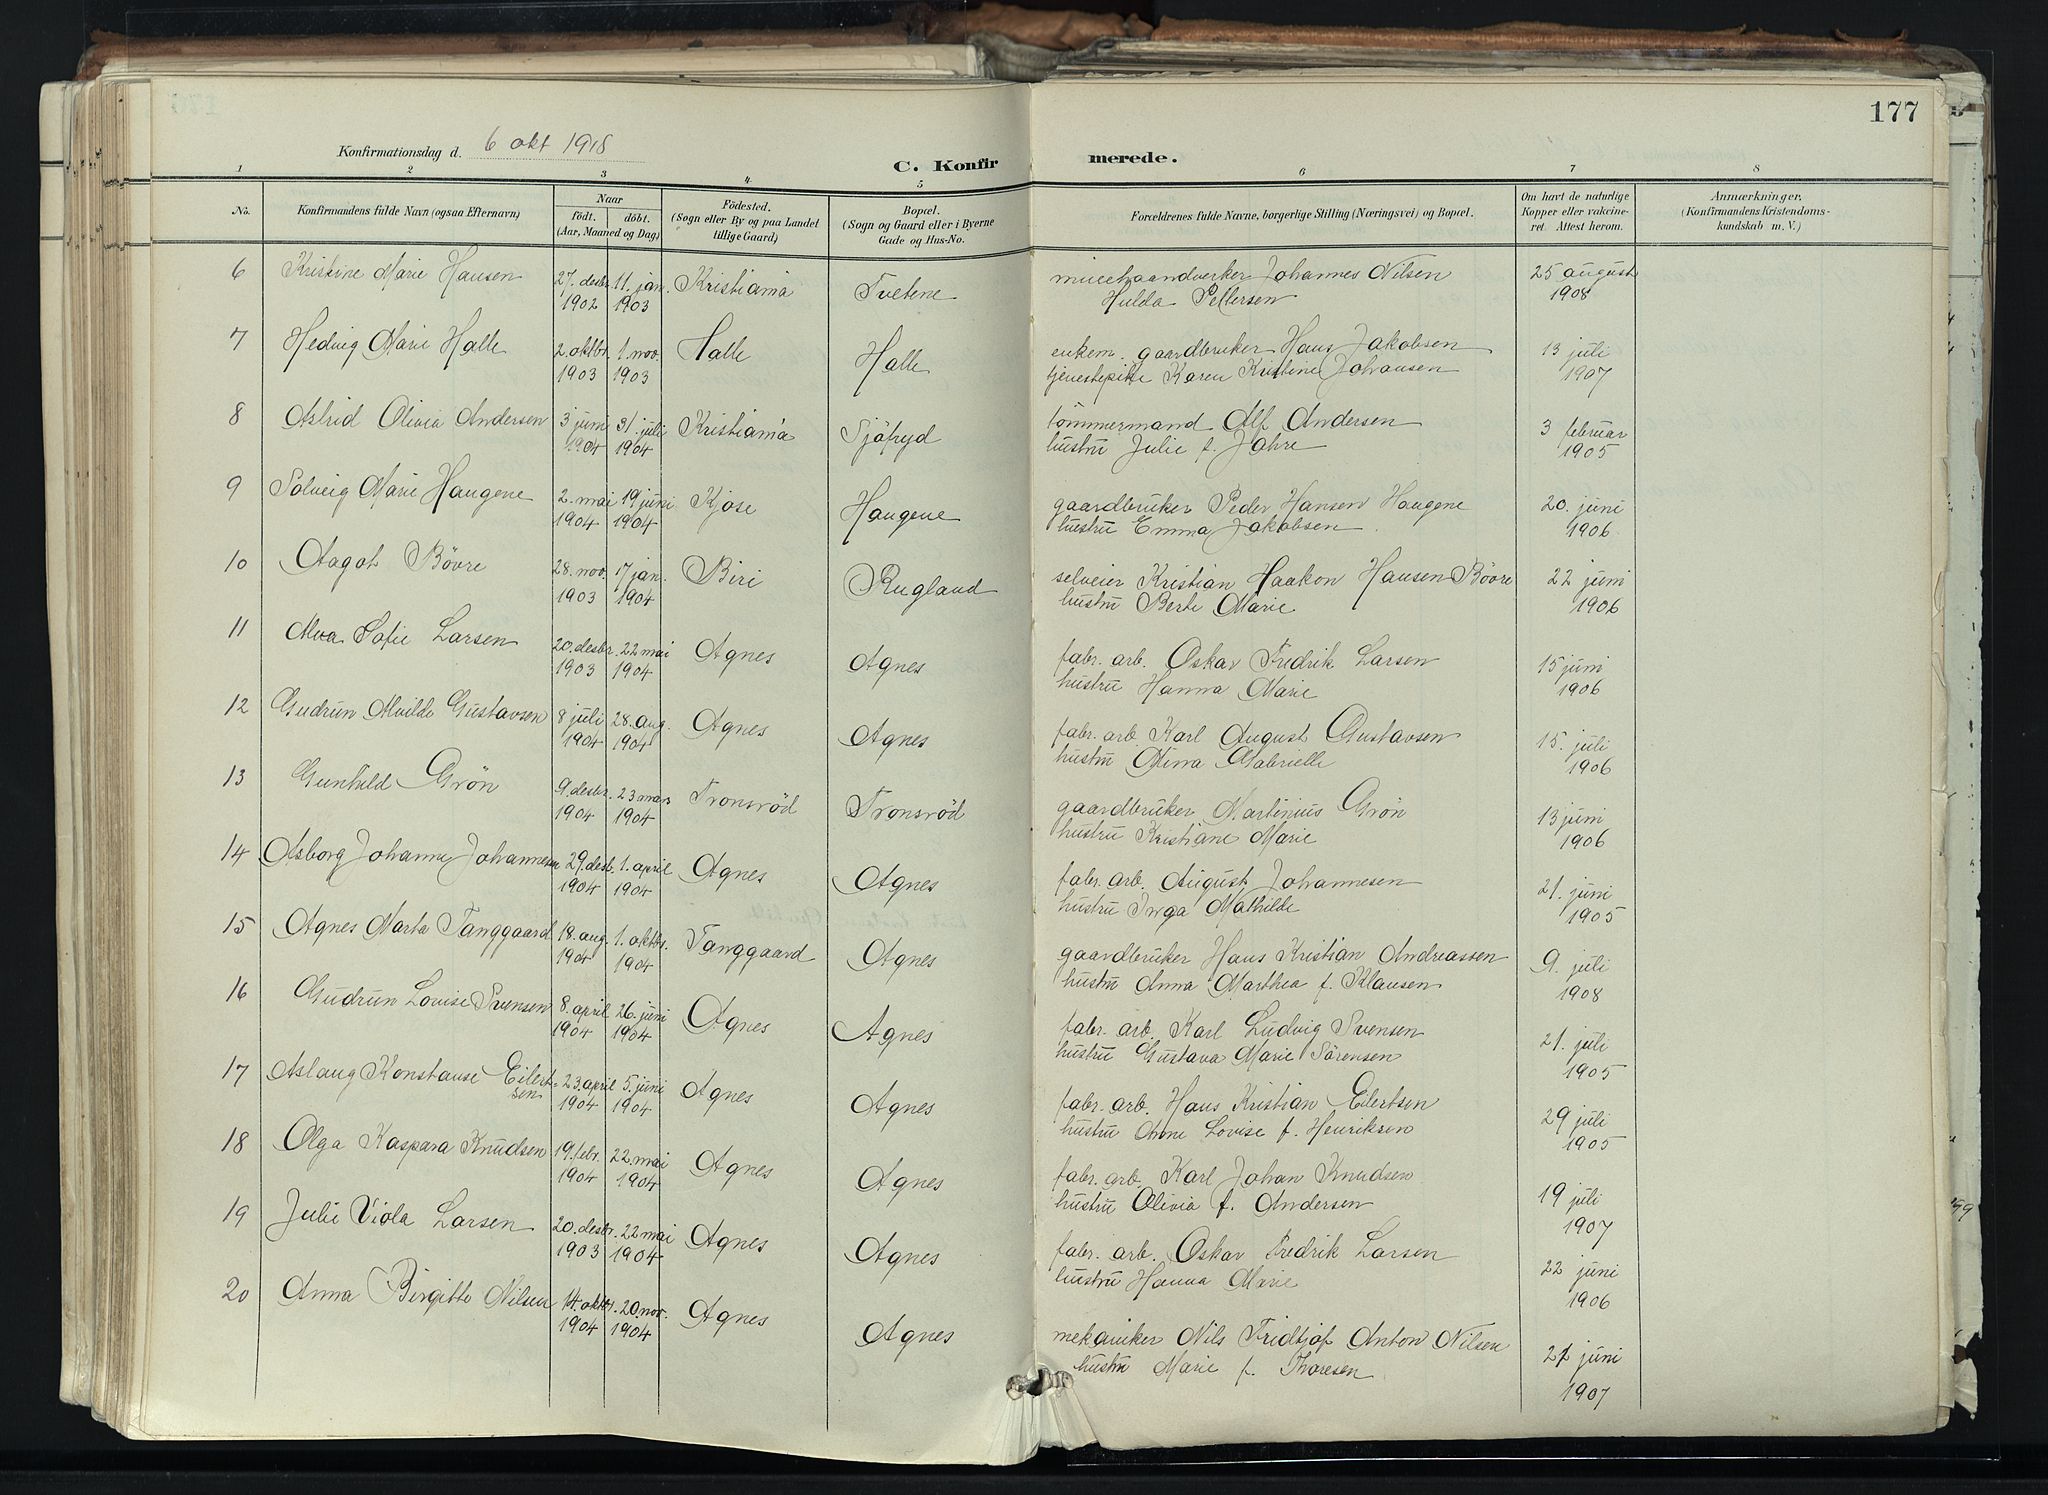 177
Konfirmationsdag d. 6 okt 1918
C. Konfirmerede.
1 2 3 4 5 6 7 8
No. Konfirmandens fulde Navn (ogsaa Efternavn) Naar födt. döbt. (Aar, Maaned og Dag) Födested. (Sogn eller By og paa Landet tillige Gaard) Bopæl. (Sogn og Gaard eller i Byerne Gade og Hus-No. Forældrenes fulde Navne, borgerlige Stilling (Næringsvei) og Bopæl. Om havt de naturlige Kopper eller vakcineret. Attest herom. Anmærkninger. (Konfirmandens Kristendomskundskab m. V.)
6 Kristine Marie Hansen 27. desbr. 1902 11. jan. 1903 Kristiania Tvetene Johannes Nilsen 25 august 1908
Hulda Pettersen
7 Hedvig Marie Halle 2. oktbr. 1903 1. nov. 1903 Halle Halle enkem. gaardbruker Hans Jakobsen 13 juli 1907
tjenestepike Karen Kristine Johansen
8 Astrid Olivia Andersen 3 juni 1904 31. juli 1904 Kristiania Sjöfryd tömmermand Alf Andersen 3 februar 1905
hustru Julie f. Jahre
9 Solveig Marie Haugene 2. mai 1904 19 juni 1904 Kjose Haugene gaardbruker Peder Hansen Haugene 20. juni 1906
hustru Emma Jakobsen.
10 Aagot Bövre 28. nov. 1903 17 jan. 1904 Biri Rugland selveier Kristian Haakon Hansen Bövre 22 juni 1906
hustru Berte Marie
11 Alva Sofie Larsen 20. desbr. 1903 22 mai 1904 Agnes Agnes fabr. arb. Oskar Fredrik Larsen 15 juni 1906
hustru Hanna Marie
12 Gudrun Alvilde Gustavsen 8 juli 1904 28. aug. 1904 Agnes Agnes fabr. arb. Karl August Gustavsen 15. juli 1906
hustru Gabrielle
13 Gunhild Grön 9. desbr. 1904 23 mars 1904 Tronsröd Tronsröd gaardbruker Martinius Grön 13 juni 1906
hustru Kristiane Marie
14 Asborg Johanne Johannesen 29. desb. 1904 1. april 1904 Agnes Agnes fabr. arb. August Johannesen 21. juni 1905
hustru Inga Mathilde
15 Agnes Marta Tanggaard 18. aug. 1904 1. oktbr. 1904 Tanggaard Agnes gaardbruker Hans Kristian Andreassen 9. juli 1908
hustru Anna Marthea f. Klausen
16 Gudrun Lovise Svensen 8. april 1904 26. juni 1904 Agnes Agnes fabr. arb. Karl Ludvig Svensen 21. juli 1905
hustru Gustava Marie Sörensen
17 Aslaug Konstanse Eilertsen 23. april 1904 5. juni 1904 Agnes Agnes fabr. arb. Hans Kristian Eilertsen 29 juli 1905
hustru Anne Lovise f. Henriksen
18 Olga Kaspara Knudsen 19. febr. 1904 22. mai 1904 Agnes Agnes fabr. arb. Karl Johan Knudsen 19 juli 1907
hustru Olivia f. Andersen
19 Julie Viola Larsen 20. desbr. 1903 22 mai 1904 Agnes Agnes fabr. arb. Oskar Fredrik Larsen 22 juni 1906
hustru Hanna Marie
20 Anna Birgitte Nilsen 14. oktbr. 1904 20. nov. 1904 Agnes Agnes mekaniker Nils Fridtjof Anton Nilsen juni 1907
hustru Marie f. Thoresen